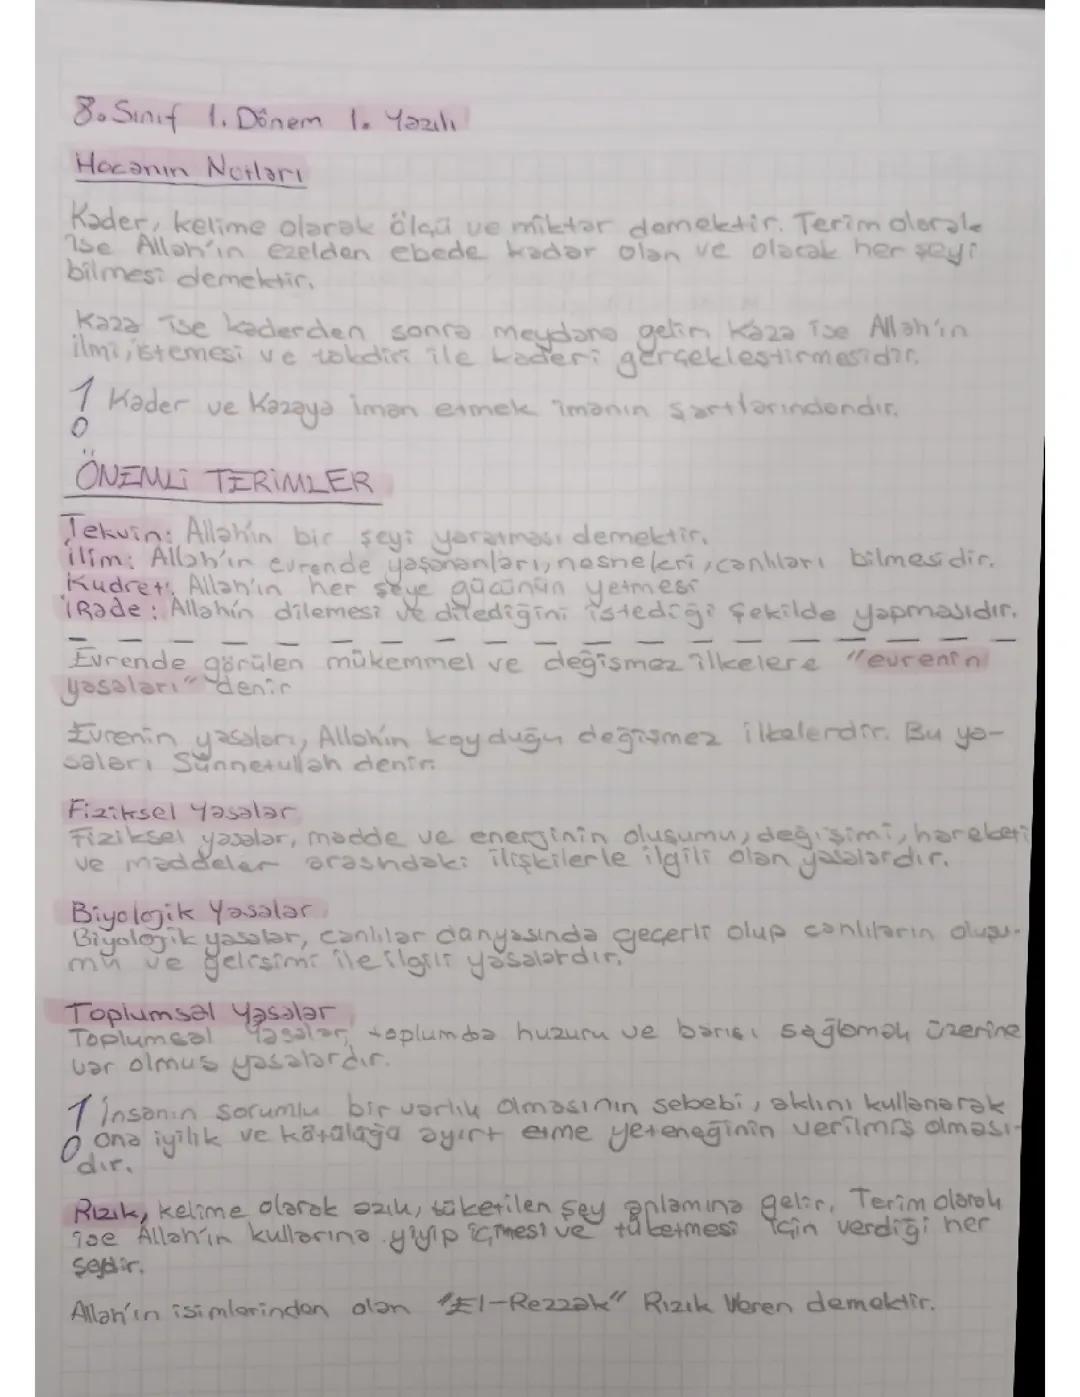 8. Sınıf 1. Dönem 1. Yazılı
Hocanın Notları
Kader, kelime olarak ölçü ve miktar demektir. Terim olarak
ise Allah'ın ezelden ebede kadar olan ve olacak her şeyi
bilmesi demektir.
Kaza ise kaderden sonra meydana gelir. Kaza ise Allah'ın
ilmi, istemesi ve takdiri ile kaderi gerçekleştirmesidir.
! Kader ve Kazaya iman etmek imanın şartlarındandır.
ÖNEMLİ TERİMLER
Tekvin: Allah'ın bir şeyi yaratması demektir.
İlim: Allah'ın evrende yaşananları, nesneleri, canlıları bilmesidir.
Kudret: Allah'ın her şeye gücünün yetmesi
İRade: Allahın dilemesi ve dilediğini istediği şekilde yapmasıdır.
Evrende görülen mükemmel ve değişmez ilkelere "evrenin
yasaları" denir
Evrenin yasaları, Allah'ın koyduğu değişmez ilkelerdir. Bu ya-
saları Sünnetullah denir.
Fiziksel Yasalar
Fiziksel yasalar, madde ve enerjinin oluşumu, değişimi, hareketi
ve maddeler arasındaki ilişkilerle ilgili olan yasalardır.
Biyolojik Yasalar
Biyolojik yasalar, canlılar dünyasında geçerli olup canlıların oluşu-
mu ve gelişimi ile ilgili yasalardır.
Toplumsal Yasalar
Toplumsal Yasalar, toplumda huzuru ve barışı sağlamak üzerine
var olmuş yasalardır.
! İnsanın sorumlu bir varlık olmasının sebebi, aklını kullanarak
ona iyilik ve kötülüğü ayırt etme yeteneğinin verilmiş olması-
dır.
Rızık, kelime olarak azık, tüketilen şey anlamına gelir. Terim olarak
ise Allah'ın kullarına yiyip içmesi ve tüketmesi için verdiği her
şeydir.
Allah'ın isimlerinden olan "El-Rezzak" Rızık Veren demektir.